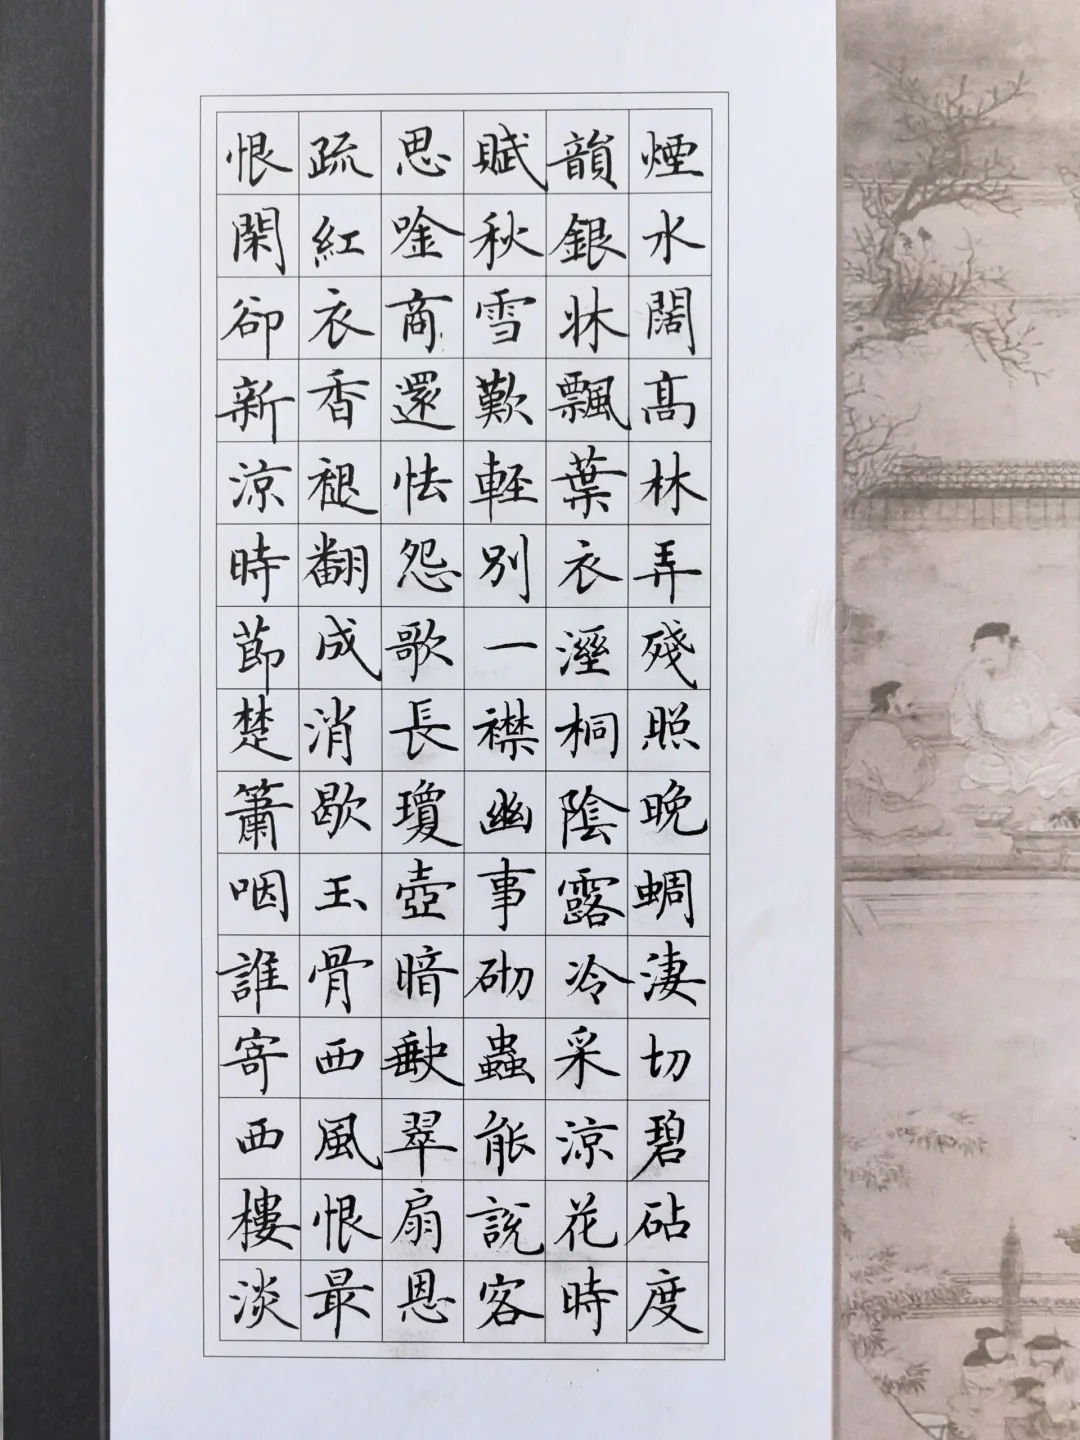 煙水闊高林弄殘照晚蜩淒切碧砧度
韻銀牀飄葉衣溼桐陰露冷采涼花時
賦秋雪歎輕別一襟幽事砌蟲能說客
思唫商還怯怨歌長瓊壺暗缺翠扇恩
疏紅衣香褪翻成消歇玉骨西風恨最
恨閑卻新涼時節楚簫咽誰寄西樓淡